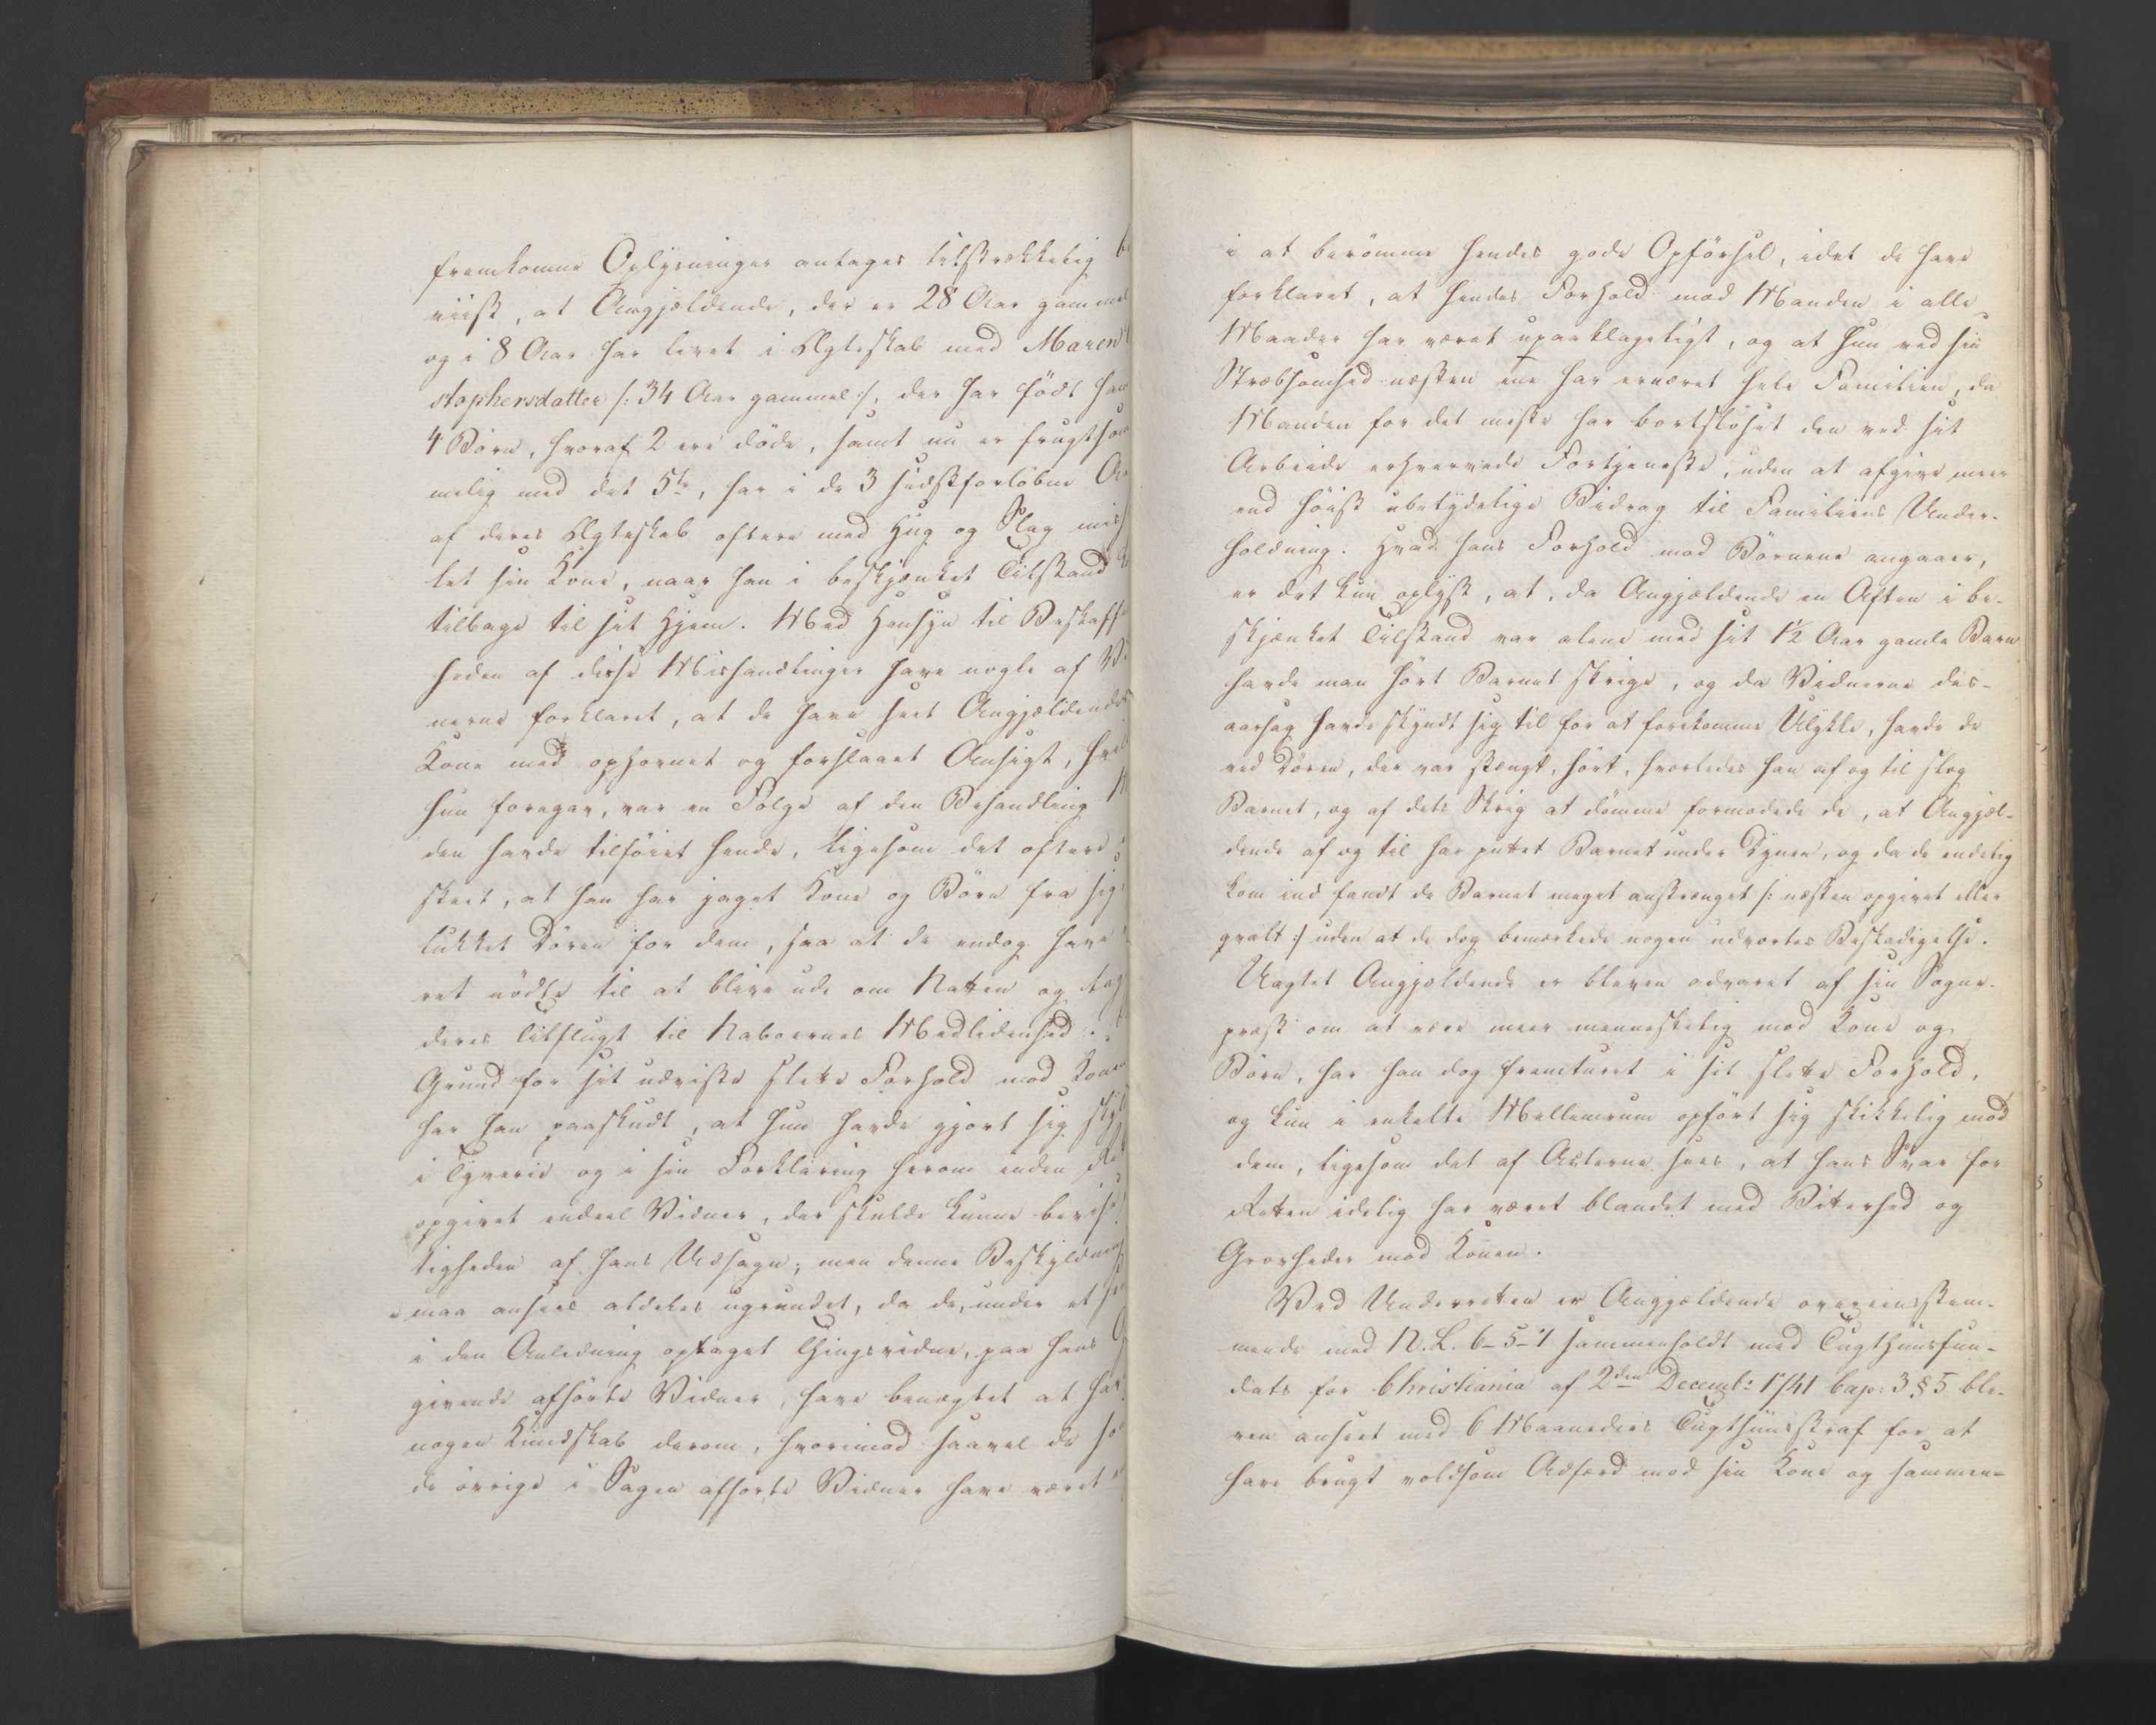 fremkomne Oplysninger antages tilstrækkelig
viist, at Angjældende, der er 28 Aar gammel
og i 8 Aar har levet i Ægteskab med Maren
stophersdatter /: 34 Aar gammel :/, der har födt ham
4 Börn, hvoraf 2 ere döde, samt nu er frugtsom
melig med det 5te, har i de 3 sidstforløbne Aar
af deres Ægteskab oftere med Hug og Slag mis
let sin Kone, naar han i beskjænket Tilstand
tilbage til sit Hjem. Med Hensyn til Beskaffen
heden af disse Mishandlinger have nogle af Vid
nerne forklaret, at de have seet Angjældendes
Kone med ophovnet og forslaaet Ansigt, hvilket
hun foregav, var en Følge af den Behandling
den havde tilföiet hende, ligesom det oftere
skeet, at han har jaget Kone og Börn fra sig
lukket Dören for dem, saa at de endog have
ret nödte til at blive ude om Natten og tage
deres Tilflugt til Naboernes Medlidenhed.
Grund for sit udviste slette Forhold mod Konen
har han paaskudt, at hun havde gjort sig skyl
i Tyverie og i sin Forklaring herom inden Ret
opgivet endeel Vidner, der skulde kunne bevise
ligheden af hans Udsagn; men denne Beskyldning
maa ansees aldeles ugrundet, da de, under et
i den Anledning optaget Thingsvidne, paa hans
givende afhörte Vidner, have benægtet at have
nogen Kundskab derom, hvorimod saavel de som
de övrige i Sagen afhörte Vidner have været
i at berömme hendes gode Opförsel, idet de have
forklaret, at hendes Forhold mod Manden i alle
Maader har været upaaklageligt, og at hun ved sin
Stræbsomhed næsten ene har ernæret hele Familien, da
Manden for det meste har bortslöset den ved sit
Arbeide erhvervede Fortjeneste, uden at afgive meer
end höist ubetydelige Bidrag til Familiens Under-
holdning. Hvad hans Forhold mod Börnene angaaer,
er det kun oplyst, at, da Angjældende en Aften i be-
skjænket Tilstand var alene med sit 1½ Aar gamle Barn
havde man hört Barnet skrige, og da Vidnerne des-
aarsag havde skyndt sig til for at forekomme Ulykke, havde de
ved Dören, der var stængt, hört, hvorledes han af og til slog
Barnet, og af dets Skrig at dömme formodede de, at Angjæl-
dende af og til har puttet Barnet under Dynen, og da de endelig
kom ind fandt de Barnet meget anstrænget /: næsten opgivet eller
qvalt :/ uden at de dog bemærkede nogen udvortes Beskadigelse.
Uagtet Angjældende er bleven advaret af sin Sogne-
præst om at være meer menneskelig mod Kone og
Börn, har han dog fremturet i sit slette Forhold,
og kun i enkelte Mellemrum opfört sig skikkelig mod
dem, ligesom det af Acterne sees, at hans Svar for
Retten idelig har været blandet med Bitterhed og
Grovheder mod Konen.
Ved Underretten er Angjældende overeensstem-
mende med N. L. 6-5-7 sammenholdt med Tugthuusfun-
dats for Christiania af 2den Decembr 1741 Cap: 3 § 5 ble-
ven anseet med 6 Maaneders Tugthuusstraf for at
have brugt voldsom Adfærd mod sin Kone og sammen-